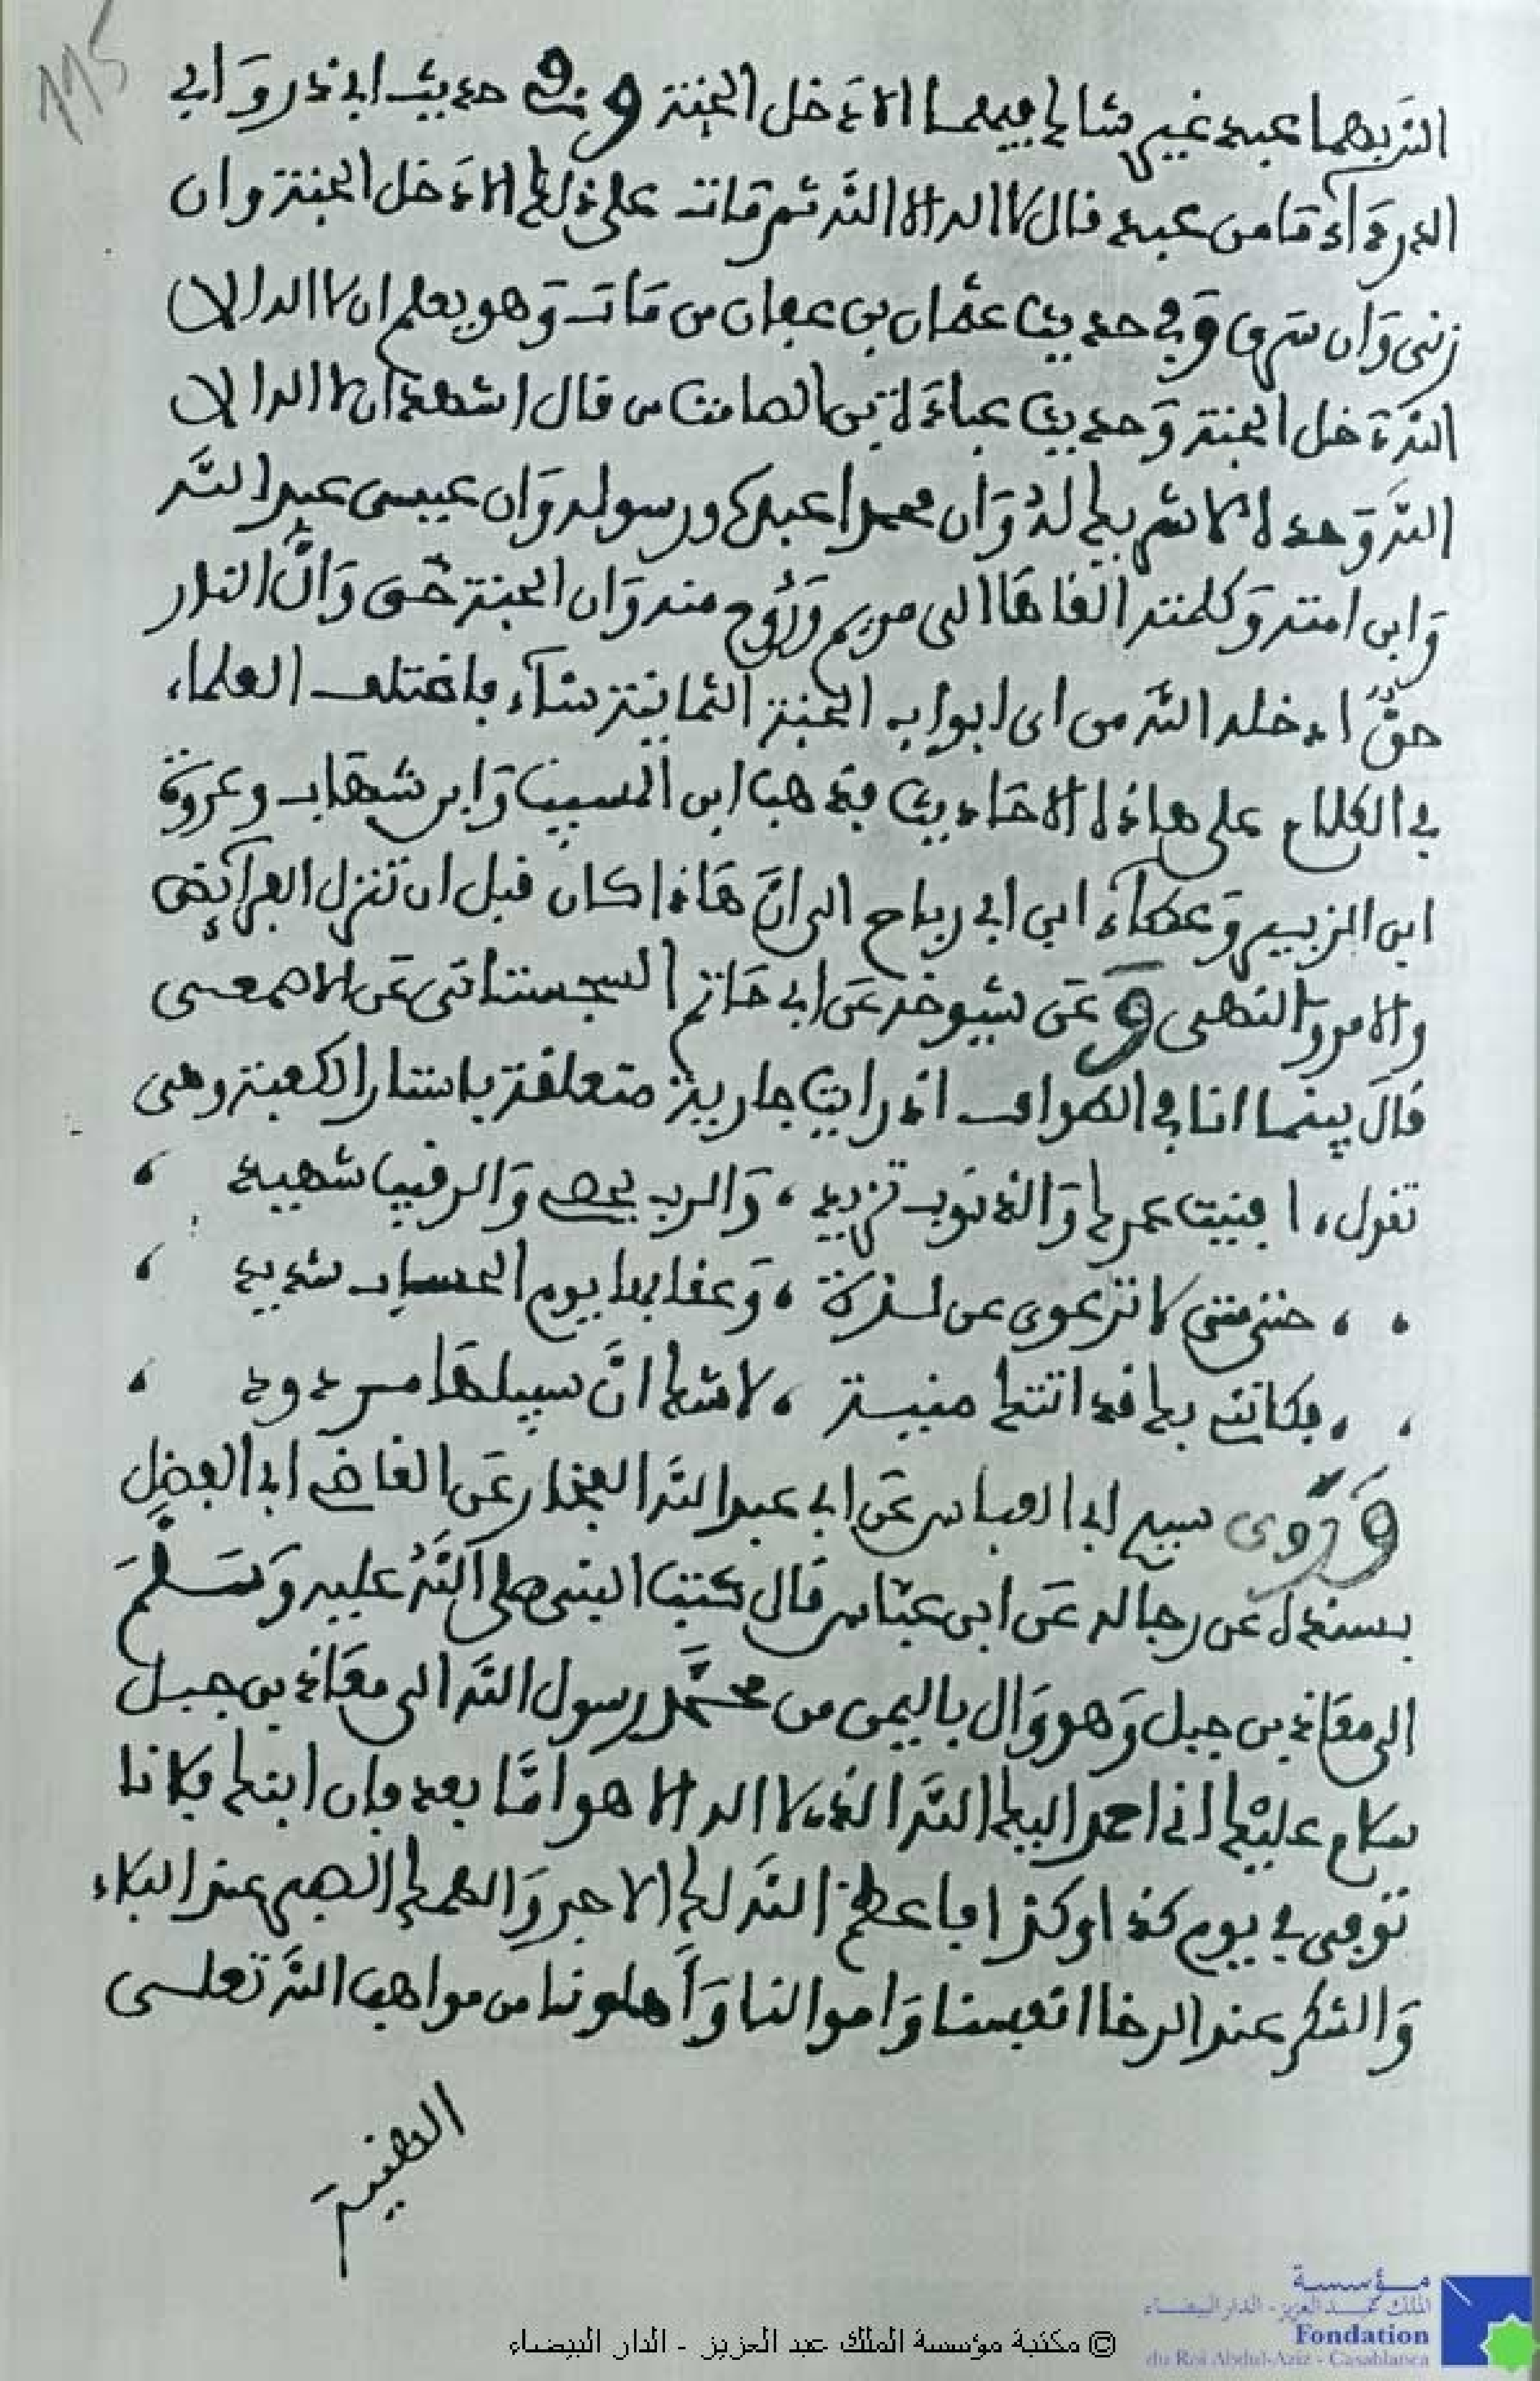 115
الله بهما عبد غير شاك فيهما الا دخل الجنة وفي حديث ابي ذر وابي
الدرداء ما من عبد قال لا اله الا الله ثم مات على ذلك الا دخل الجنة وان
زنى وان سرق وفي حديث عثمان بن عفان من مات وهو يعلم ان لا اله الا
الله دخل الجنة وحديث عبادة بن الصامت من قال اشهد ان لا اله الا
الله وحده لا شريك له وان محمدا عبده ورسوله وان عيسى عبد الله
وابن امته وكلمته القاها الى مريم وروح منه وان الجنة حق وان النار
حق ادخله الله من اي ابواب الجنة الثمانية شاء فاختلف العلماء
في الكلام على هاذه الاحاديث فذهب ابن المسيب وابن شهاب وعروة
ابن الزبير وعطاء ابن ابي رباح الى ان هاذا كان قبل ان تنزل الفرائض
والامر والنهى وعن شيوخه عن ابي حاتم السجستاني عن الاصمعى
قال بينما انا في الطواف اذ رايت جارية متعلقة باستار الكعبة وهى
تقول، افنيت عمرك والذنوب تزيد ، والرب يحصي والرقيب شهيد ،
، ، حتى متى لا ترعوى عن لذة ، وعقابها يوم الحساب شديد ،
، ، فكانني بك قد اتتك منية ، لا شك ان سبيلها مردود ،
وروى سيدي ابي العباس عن ابي عبد الله الفخار عن القاضي ابي الفضل
بسنده عن رجاله عن ابن عباس قال كتب النبى صلى الله عليه وسلم
الى معاذ بن جبل وهو وال باليمن من محمد رسول الله الى معاذ بن جبل
سلام عليك اني احمد اليك الله الذي لا اله الا هو اما بعد فان ابنك فلانا
توفى في يوم كذا وكذا فاعظم الله لك الاجر والهمك الصبر عند البلاء
والشكر عند الرخا انفسنا واموالنا واهلونا من مواهب الله تعلى
الهنية
مؤسسة
الملك عبد العزيز - الدار البيضاء
Fondation
du Roi Abdul-Aziz - Casablanca
© مكتبة مؤسسة الملك عبد العزيز - الدار البيضاء